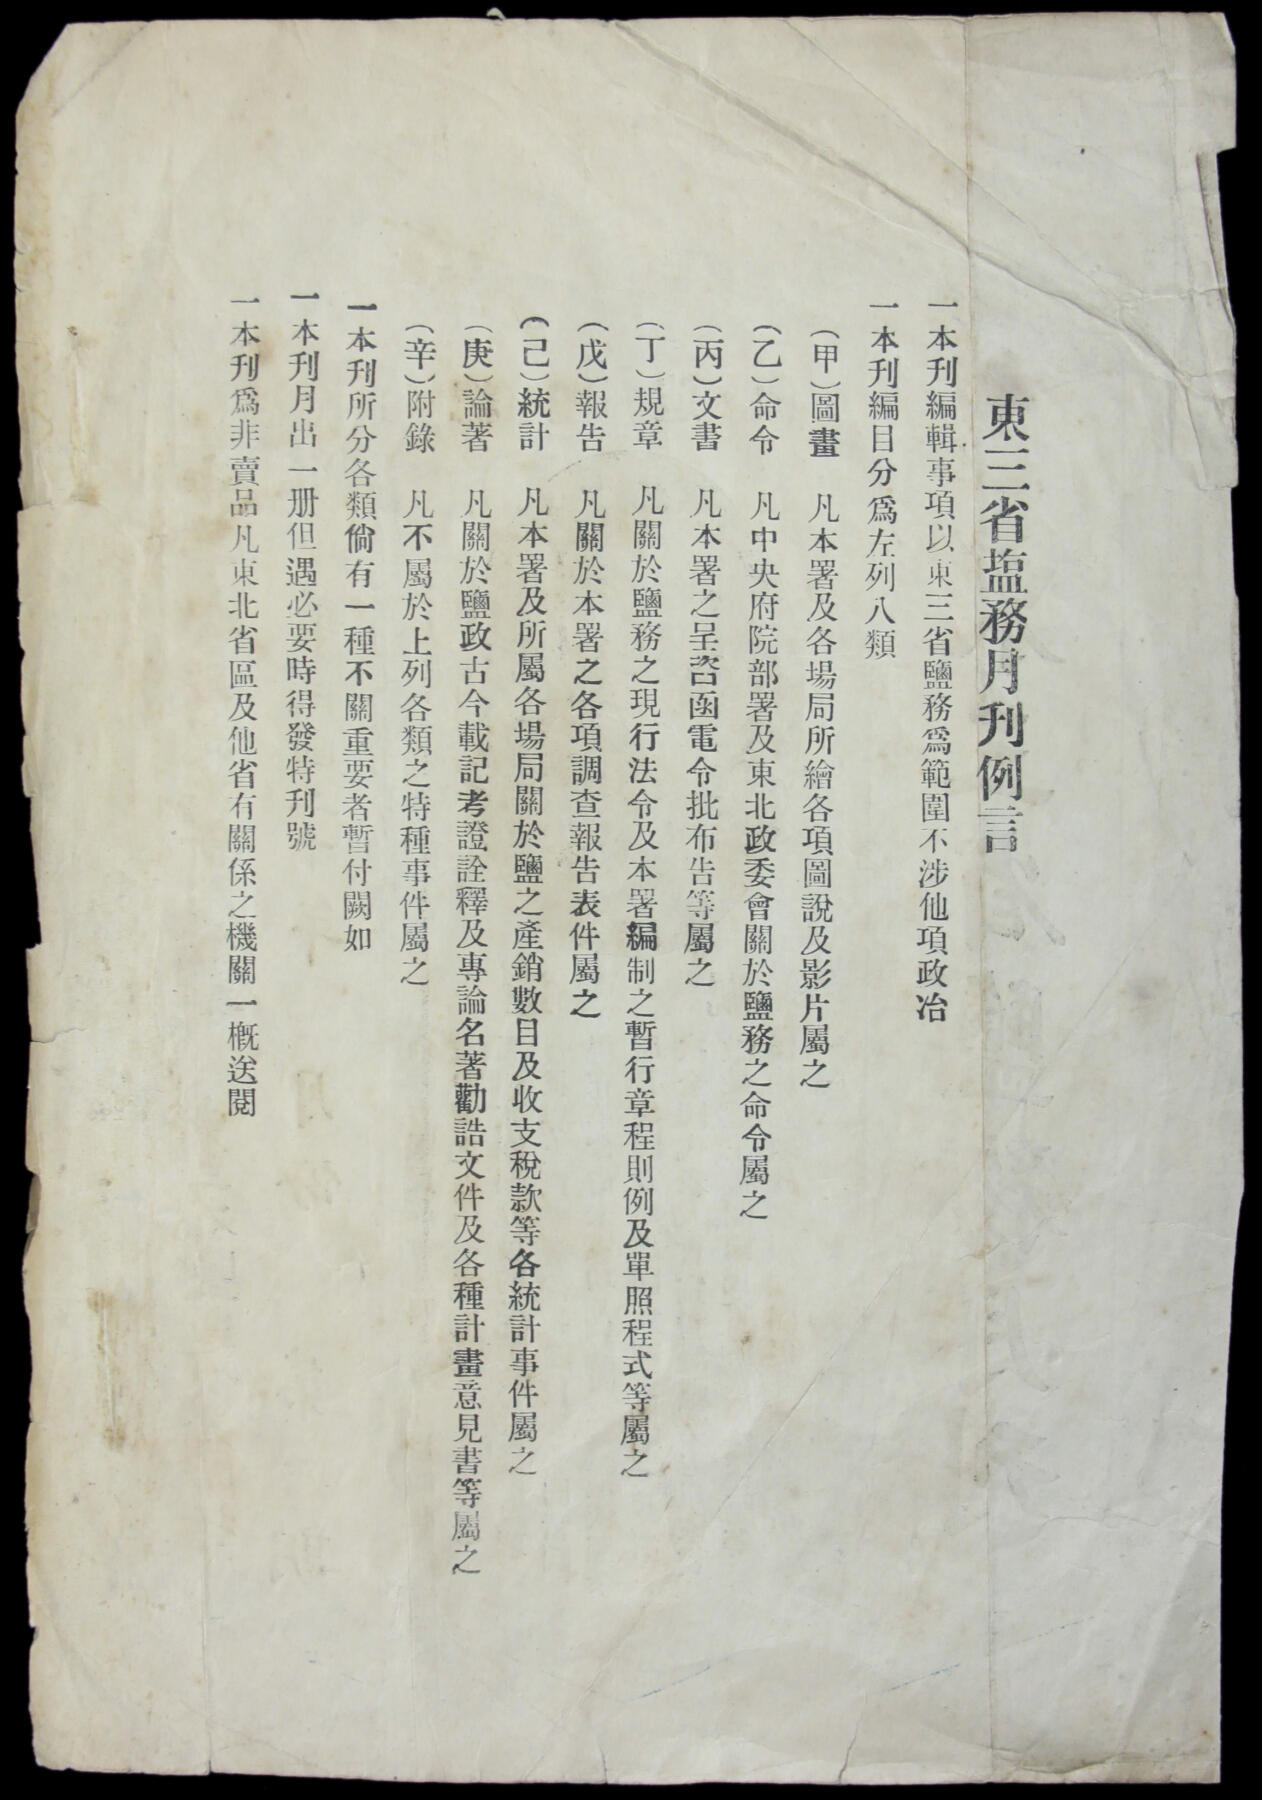 東三省塩務月刊例言
一本刊編輯事項以東三省鹽務爲範圍不涉他項政治
一本刊編目分爲左列八類
（甲）圖畫　凡本署及各場局所繪各項圖說及影片屬之
（乙）命令　凡中央府院部署及東北政委會關於鹽務之命令屬之
（丙）文書　凡本署之呈咨函電令批布告等屬之
（丁）規章　凡關於鹽務之現行法令及本署編制之暫行章程則例及單照程式等屬之
（戊）報告　凡關於本署之各項調查報告表件屬之
（己）統計　凡本署及所屬各場局關於鹽之產銷數目及收支稅款等各統計事件屬之
（庚）論著　凡關於鹽政古今載記考證詮釋及專論名著勸誥文件及各種計畫意見書等屬之
（辛）附錄　凡不屬於上列各類之特種事件屬之
一本刊所分各類倘有一種不關重要者暫付闕如
一本刊月出一册但遇必要時得發特刊號
一本刊爲非賣品凡東北省區及他省有關係之機關一槪送閱